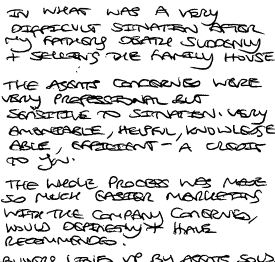 IN WHAT WAS A VERY
DIFFICULT SITUATION AFTER
MY FATHERS DEATH SUDDENLY
+ SELLING THE FAMILY HOUSE
THE AGENTS CONCERNED WERE
VERY PROFESSIONAL BUT
SENSITIVE TO SITUATION. VERY
AMENABLE, HELPFUL, KNOWLEDGE
ABLE, EFFICIENT - A CREDIT
TO YOU.
THE WHOLE PROCESS WAS MADE
SO MUCH EASIER MARKETING
WITH THE COMPANY CONCERNED,
WOULD DEFINETLY + HAVE
RECOMMENDED.
BUYERS LINED UP BY AGENTS SOLD